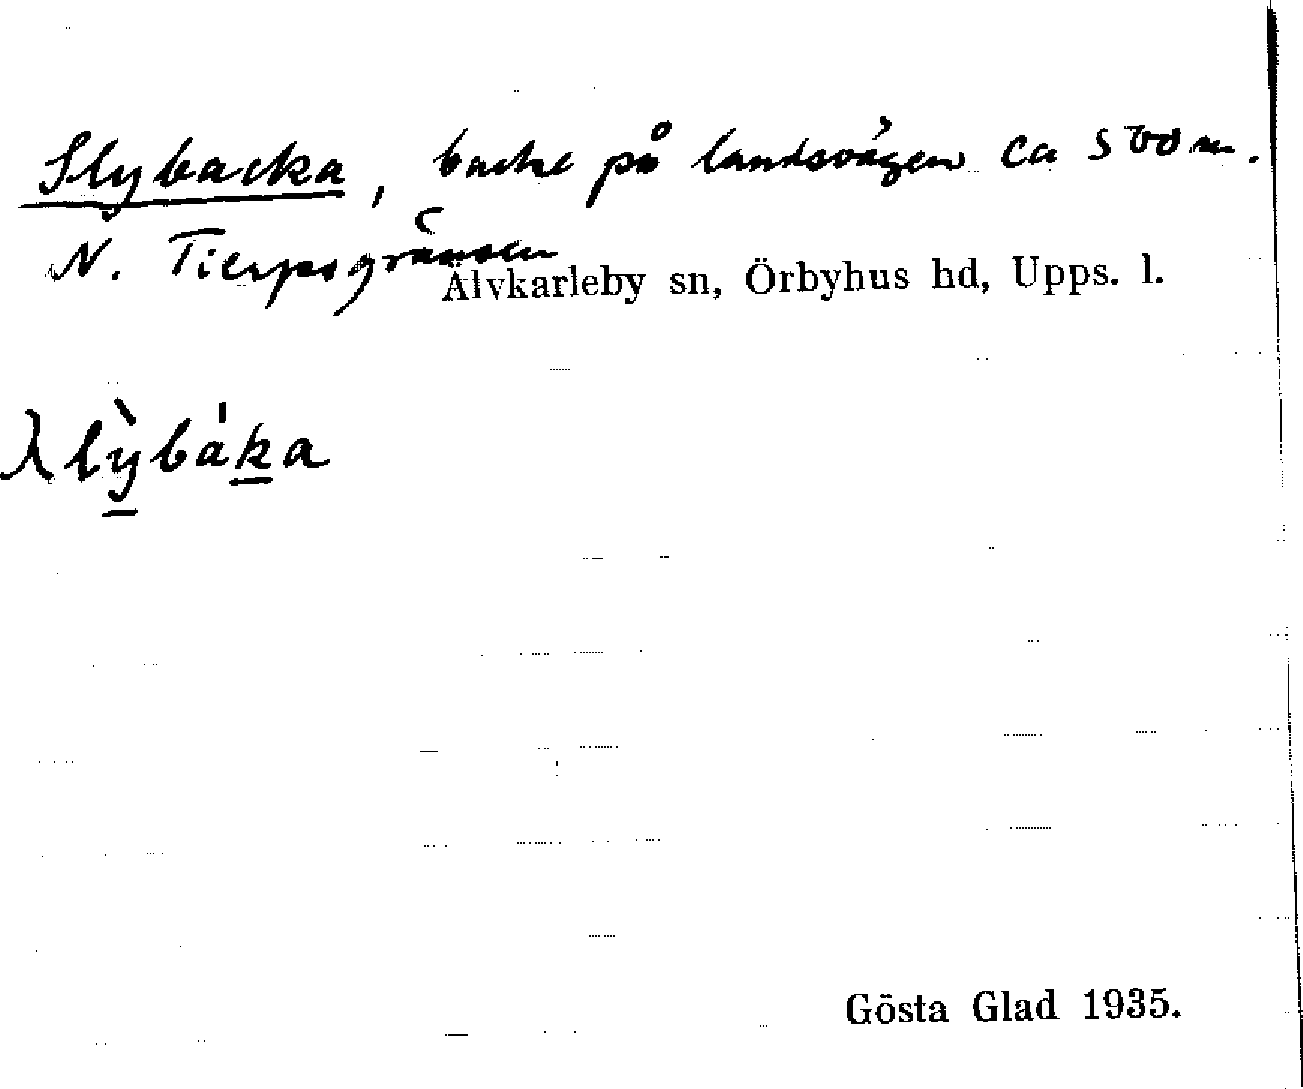 Slybacka, backe på landsvägen ca 500 m.
N. Tierpsgränsen
Älvkarleby sn, Örbyhus hd, Upps. l.
slỳbáka
Gösta Glad 1935.